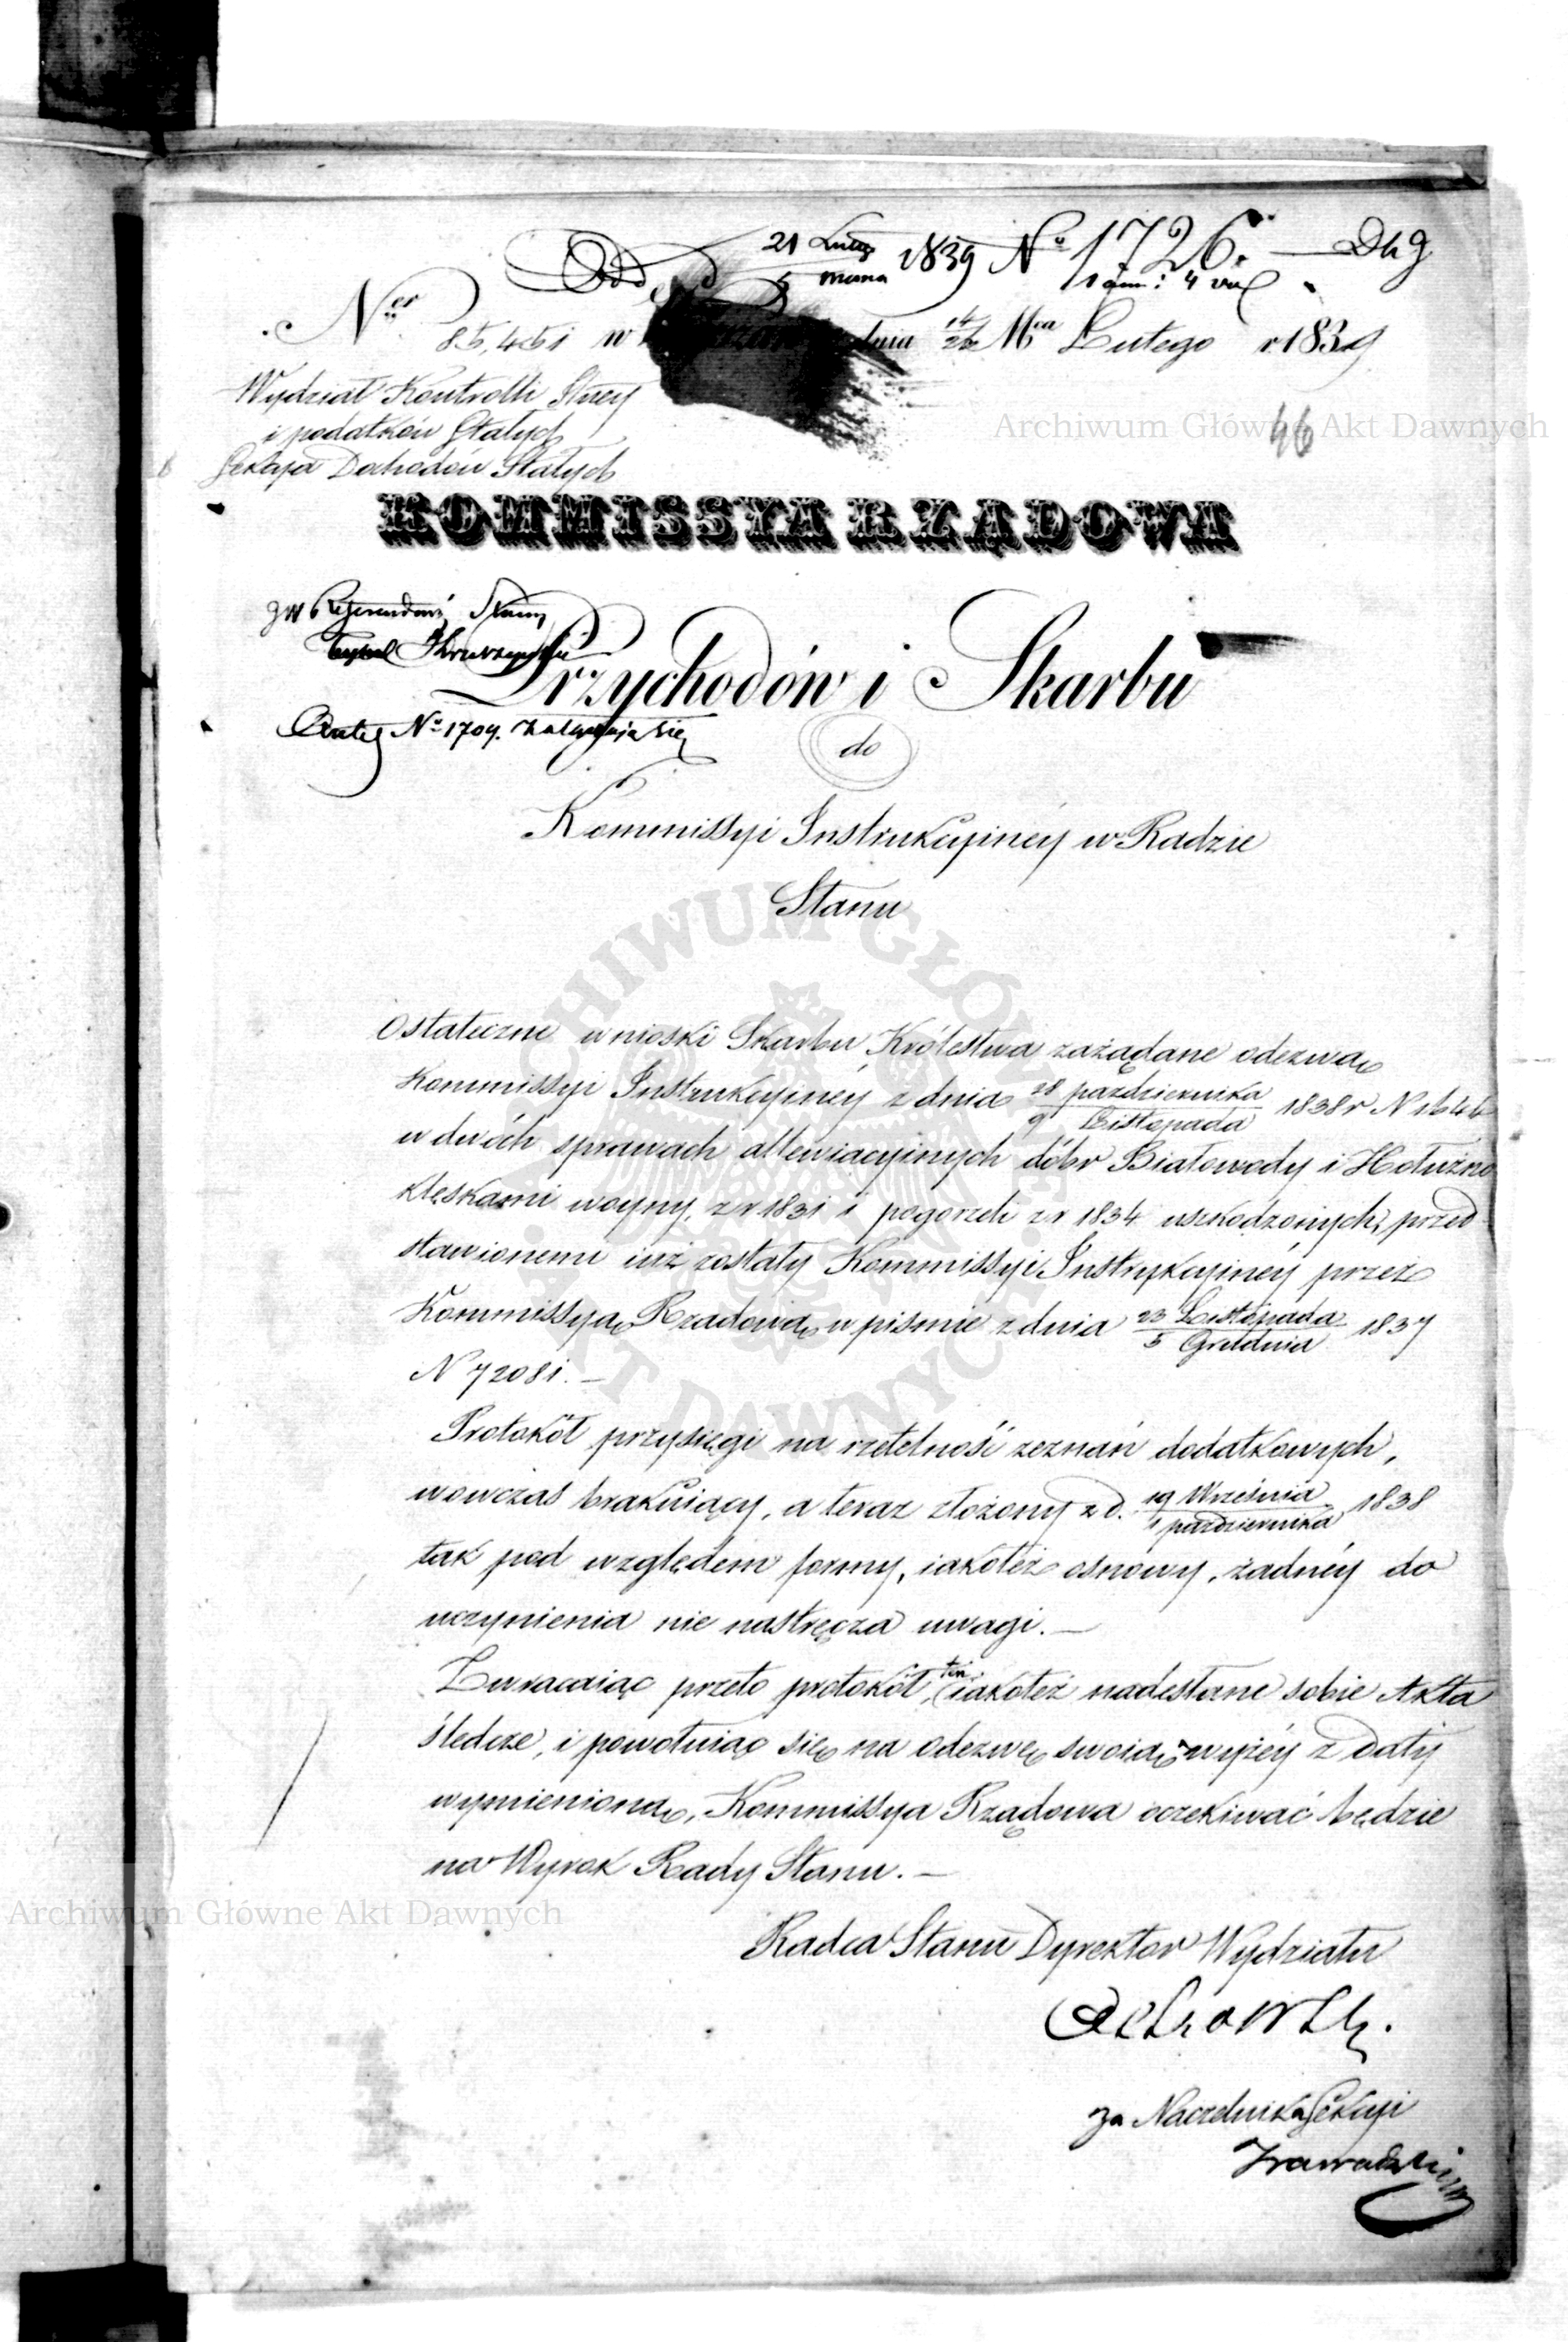 Odd. d. 21 Lutego / 5 Marca 1839 No 1726. Dług
Ner 85,451 w dnia 14/26 Mca Lutego r 1839
46
Archiwum Główne Akt Dawnych
Wydział Kontrolli
i podatków Stałych
Sekcya Dochodów Stałych
KOMMISSYA RZĄDOWA
Referendarz Stanu
Przychodów i Skarbu
No 1709. załatwia się
do
Kommissyi Instrukcyinéy w Radzie
Stanu
Ostateczne wnioski Skarbu Królestwa zażądane odezwą
Kommissyi Instrukcyinéy z dnia 28 pazdziernika / 9 Listopada 1838 r N 1646
w dwóch sprawach allewiacyinych dóbr Białowody i Hołużno
klęskami woyny z r 1831 i pogorzeli z r 1834 uszkodzonych, przed
stawionemi iuż zostały Kommissyi Instrukcyinéy przez
Kommissyą Rządową w pismie z dnia 23 Listopada / 5 Grudnia 1837
N 72081. —
Protokół przysięgi na rzetelność zeznań dodatkowych,
wowczas brakuiący, a teraz złożony z d. 19 Września / 1 pazdziernika 1838
tak pod względem formy, iakoteż osnowy, żadnéy do
uczynienia nie nastręcza uwagi. —
Zwracaiąc przeto protokół ten, iakoteż nadesłane sobie Akta
śledcze, i powołuiąc się na odezwę swoią wyżéy z daty
wymienioną, Kommissya Rządowa oczekiwać będzie
na Wyrok Rady Stanu. —
Archiwum Główne Akt Dawnych
Radca Stanu Dyrektor Wydziału
za Naczelnika Sekcyi
ARCHIWUM GŁÓWNE AKT DAWNYCH